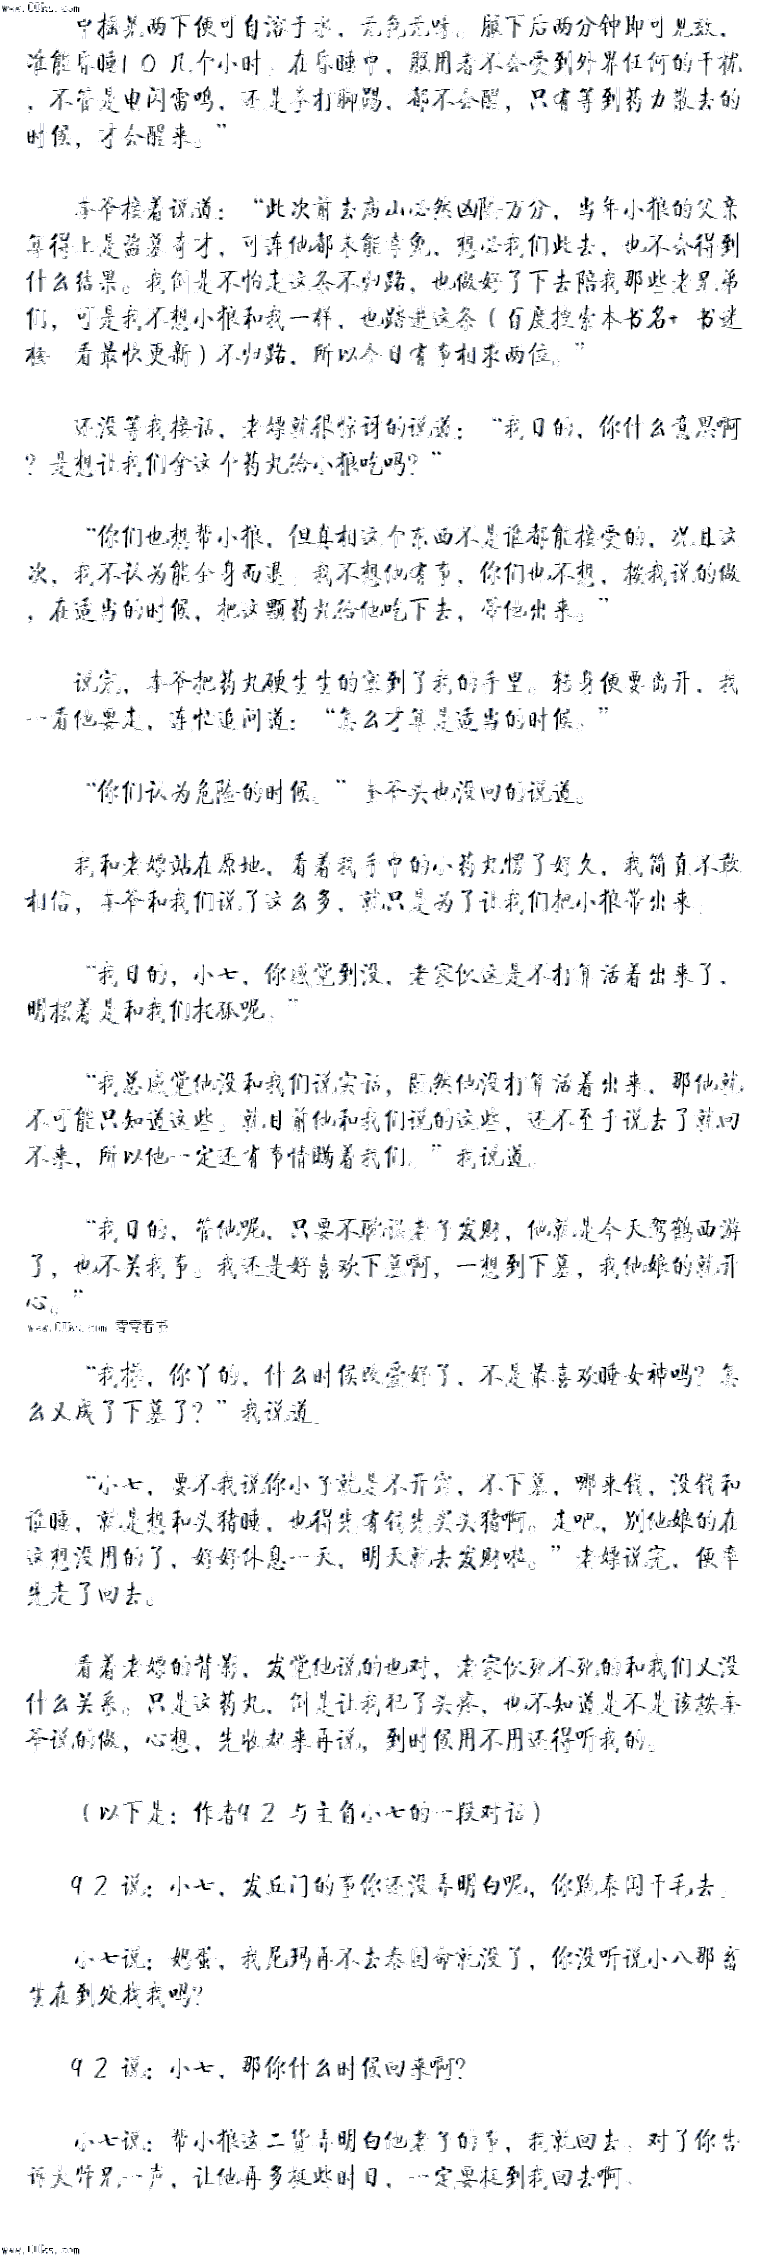 www.00ks.com
中摇晃两下便可自溶于水，无色无味。服下后两分钟即可见效，
准能昏睡10几个小时，在昏睡中，服用者不会受到外界任何的干扰
，不管是电闪雷鸣，还是拳打脚踢，都不会醒，只有等到药力散去的
时候，才会醒来。”
奎爷接着说道：“此次前去南山必然凶险万分，当年小狼的父亲
算得上是盗墓奇才，可连他都未能幸免，想必我们此去，也不会得到
什么结果。我倒是不怕走这条不归路，也做好了下去陪我那些老兄弟
们，可是我不想小狼和我一样，也踏进这条（百度搜索本书名+ 书迷
楼 看最快更新）不归路，所以今日有事相求两位。”
还没等我接话，老嫖就很惊讶的说道：“我日的，你什么意思啊
？是想让我们拿这个药丸给小狼吃吗？”
“你们也想帮小狼，但真相这个东西不是谁都能接受的，况且这
次，我不认为能全身而退，我不想他有事，你们也不想，按我说的做
，在适当的时候，把这颗药丸给他吃下去，带他出来。”
说完，奎爷把药丸硬生生的塞到了我的手里。转身便要离开，我
一看他要走，连忙追问道：“怎么才算是适当的时候。”
“你们认为危险的时候。”奎爷头也没回的说道。
我和老嫖站在原地，看着我手中的小药丸愣了好久，我简直不敢
相信，奎爷和我们说了这么多，就只是为了让我们把小狼带出来。
“我日的，小七，你感觉到没，老家伙这是不打算活着出来了，
明摆着是和我们托孤呢。”
“我总感觉他没和我们说实话，既然他没打算活着出来，那他就
不可能只知道这些，就目前他和我们说的这些，还不至于说去了就回
不来，所以他一定还有事情瞒着我们。”我说道。
“我日的，管他呢，只要不耽误老子发财，他就是今天驾鹤西游
了，也不关我事。我还是好喜欢下墓啊，一想到下墓，我他娘的就开
心。”
www.00ks.com 零零看书
“我操，你丫的，什么时候改爱好了，不是最喜欢睡女神吗？怎
么又成了下墓了？”我说道。
“小七，要不我说你小子就是不开窍，不下墓，哪来钱，没钱和
谁睡，就是想和头猪睡，也得先有钱先买头猪啊。走吧，别他娘的在
这想没用的了，好好休息一天，明天就去发财啦。”老嫖说完，便率
先走了回去。
看着老嫖的背影，发觉他说的也对，老家伙死不死的和我们又没
什么关系。只是这药丸，倒是让我犯了头疼，也不知道是不是该按奎
爷说的做，心想，先收起来再说，到时候用不用还得听我的。
（以下是：作者92 与主角小七的一段对话）
92 说：小七，发丘门的事你还没弄明白呢，你跑泰国干毛去。
小七说：妈蛋，我尼玛再不去泰国命就没了，你没听说小八那畜
生在到处找我吗？
92 说：小七，那你什么时候回来啊？
小七说：帮小狼这二货弄明白他老子的事，我就回去。对了你告
诉大师兄一声，让他再多挺些时日，一定要挺到我回去啊。
www.00ks.com